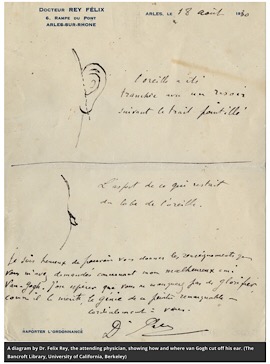 DOCTEUR REY FÉLIX
6, RAMPE DU PONT
ARLES-SUR-RHONE
ARLES, LE 18 août 1930
L'oreille a été
tranchée avec un rasoir
suivant le trait pointillé
L'aspect de ce qui restait
du lobe de l'oreille.
Je suis heureux de pouvoir vous donner les renseignements que
vous m'avez demandés concernant mon malheureux ami
Van Gogh. J'ose espérer que vous ne manquerez pas de glorifier
comme il le mérite le génie de ce peintre remarquable
cordialement à vous
Dr Rey
RAPPORTER L'ORDONNANCE
A diagram by Dr. Felix Rey, the attending physician, showing how and where van Gogh cut off his ear. (The
Bancroft Library, University of California, Berkeley)